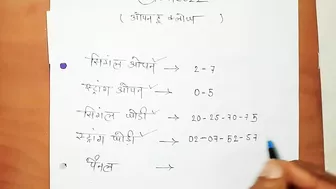 ( ओपन टू क्लोज )
सिंगल ओपन → 2-7
स्ट्रांग ओपन → 0-5
सिंगल जोडी → 20-25-70-75
स्ट्रांग जोडी → 02-07-52-57
पॅनल →